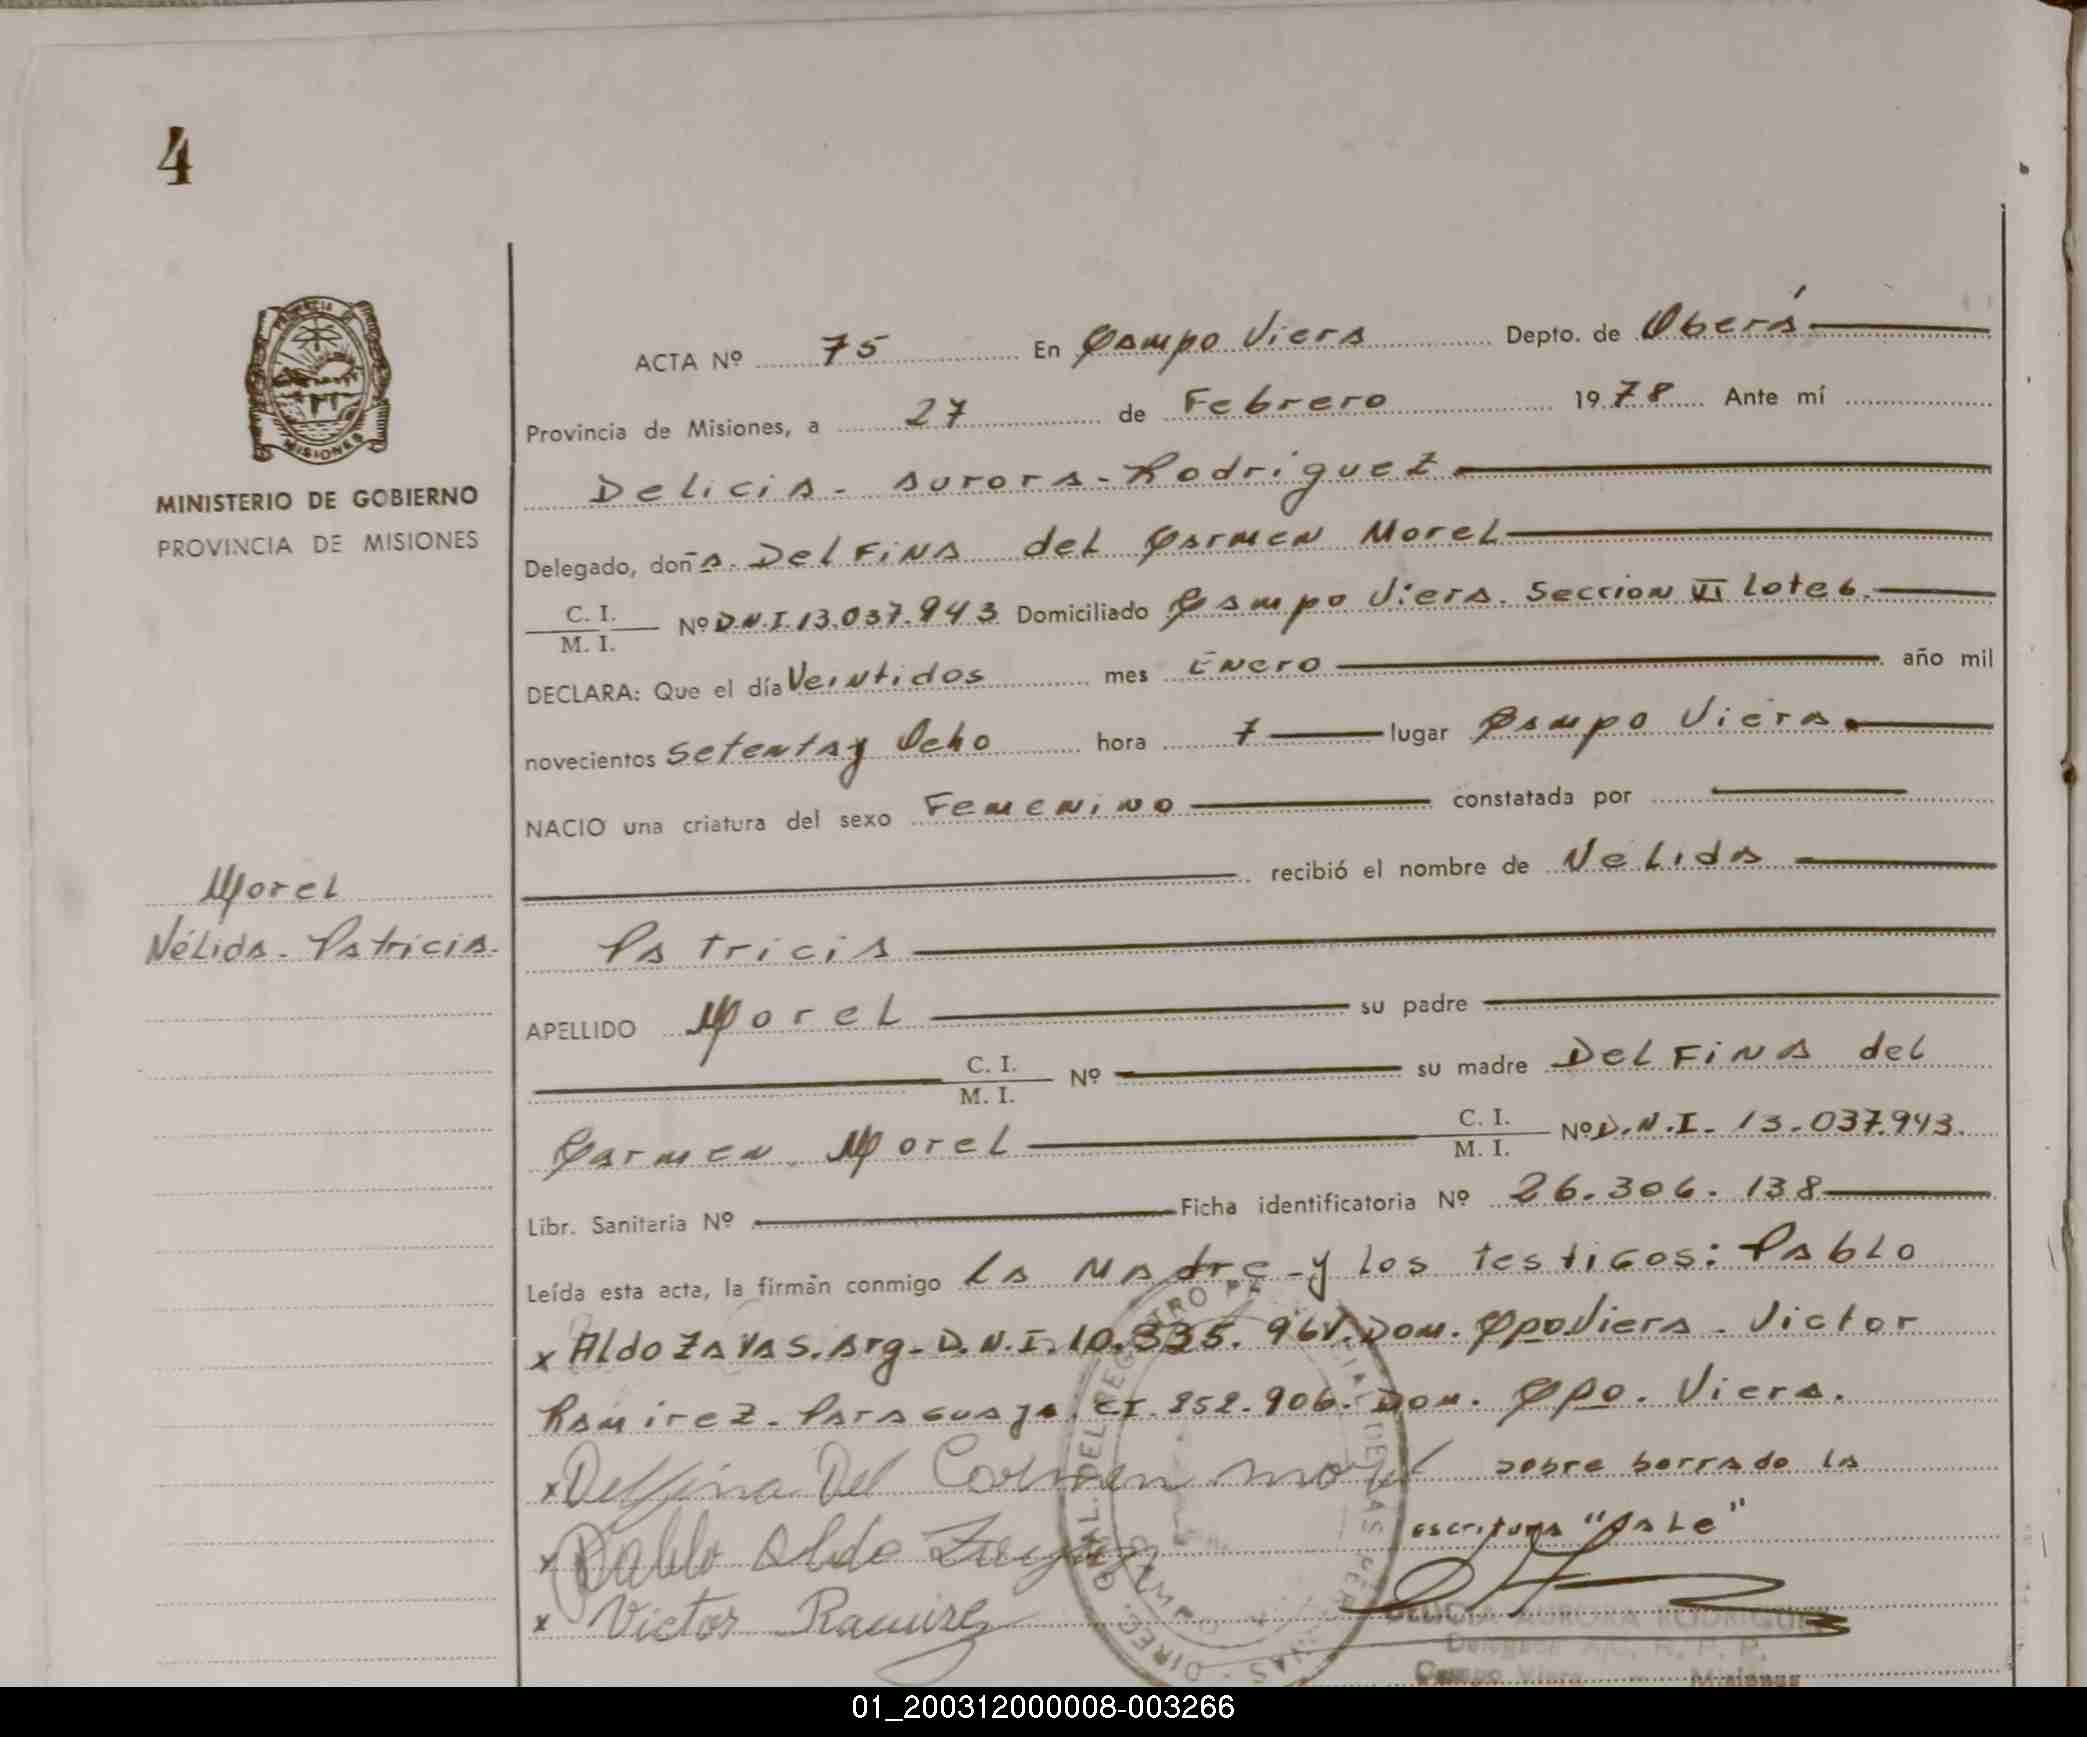 4
PROVINCIA DE
MISIONES
MINISTERIO DE GOBIERNO
PROVINCIA DE MISIONES
Morel
Nélida - Patricia.
ACTA Nº 75 En Campo Viera Depto. de Oberá
Provincia de Misiones, a 27 de Febrero 1978 Ante mí
Delicia - Aurora - Rodriguez
Delegado, doña Delfina del Carmen Morel
C. I.
M. I. Nº D.N.I. 13.037.943 Domiciliado Campo Viera. Seccion VI lote 6.
DECLARA: Que el día Veintidos mes Enero año mil
novecientos Setenta y Ocho hora 7 lugar Campo Viera.
NACIO una criatura del sexo Femenino constatada por
recibió el nombre de Nelida
Patricia
APELLIDO Morel su padre
C. I.
M. I. Nº su madre Delfina del
Carmen Morel C. I.
M. I. Nº D.N.I. 13.037.943.
Libr. Sanitaria Nº Ficha identificatoria Nº 26.306.138
Leída esta acta, la firman conmigo La Madre y los testigos: Pablo
x Aldo Zayas. Arg. D.N.I. 10.335. Dom. Cpo Viera. Victor
Ramirez. Paraguayo. CI. 252.906. Dom. Cpo. Viera.
x Delfina Del Carmen Morel sobre borrado la
escritura "Vale"
x Pablo Aldo Zayas
x Victor Ramirez
DELICIA AURORA RODRIGUEZ
Campo Viera - Misiones
01_200312000008-003266